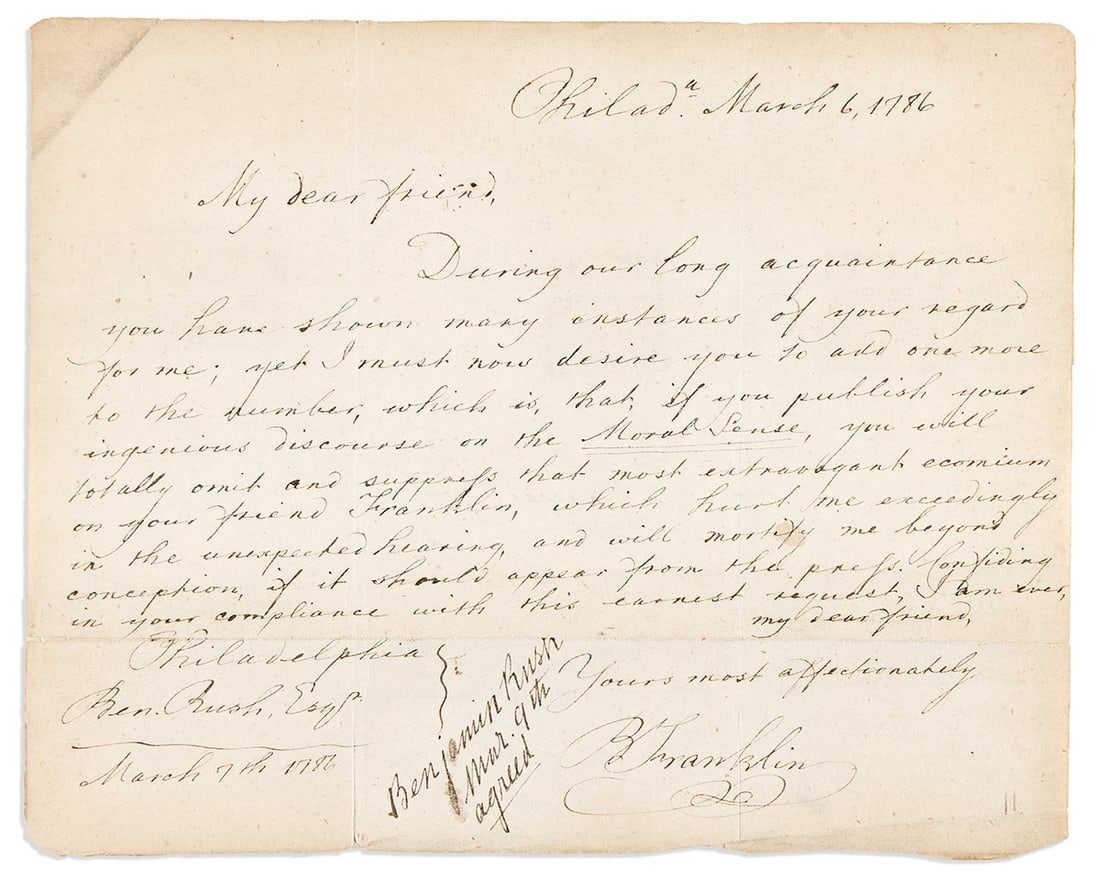 Philad.ᵃ March 6, 1786
My dear friend,
During our long acquaintance
you have shown many instances of your regard
for me; yet I must now desire you to add one more
to the number, which is, that, if you publish your
ingenious discourse on the Moral Sense, you will
totally omit and suppress that most extravagant ecomium
on your friend Franklin, which hurt me exceedingly
in the unexpected hearing, and will mortify me beyond
conception, if it should appear from the press. Confiding
in your compliance with this earnest request, I am ever,
my dear friend,
Yours most affectionately
B Franklin
Philadelphia
Ben. Rush, Esqr.
March 7th 1786
Benjamin Rush
Mar. 9th
agreed
11